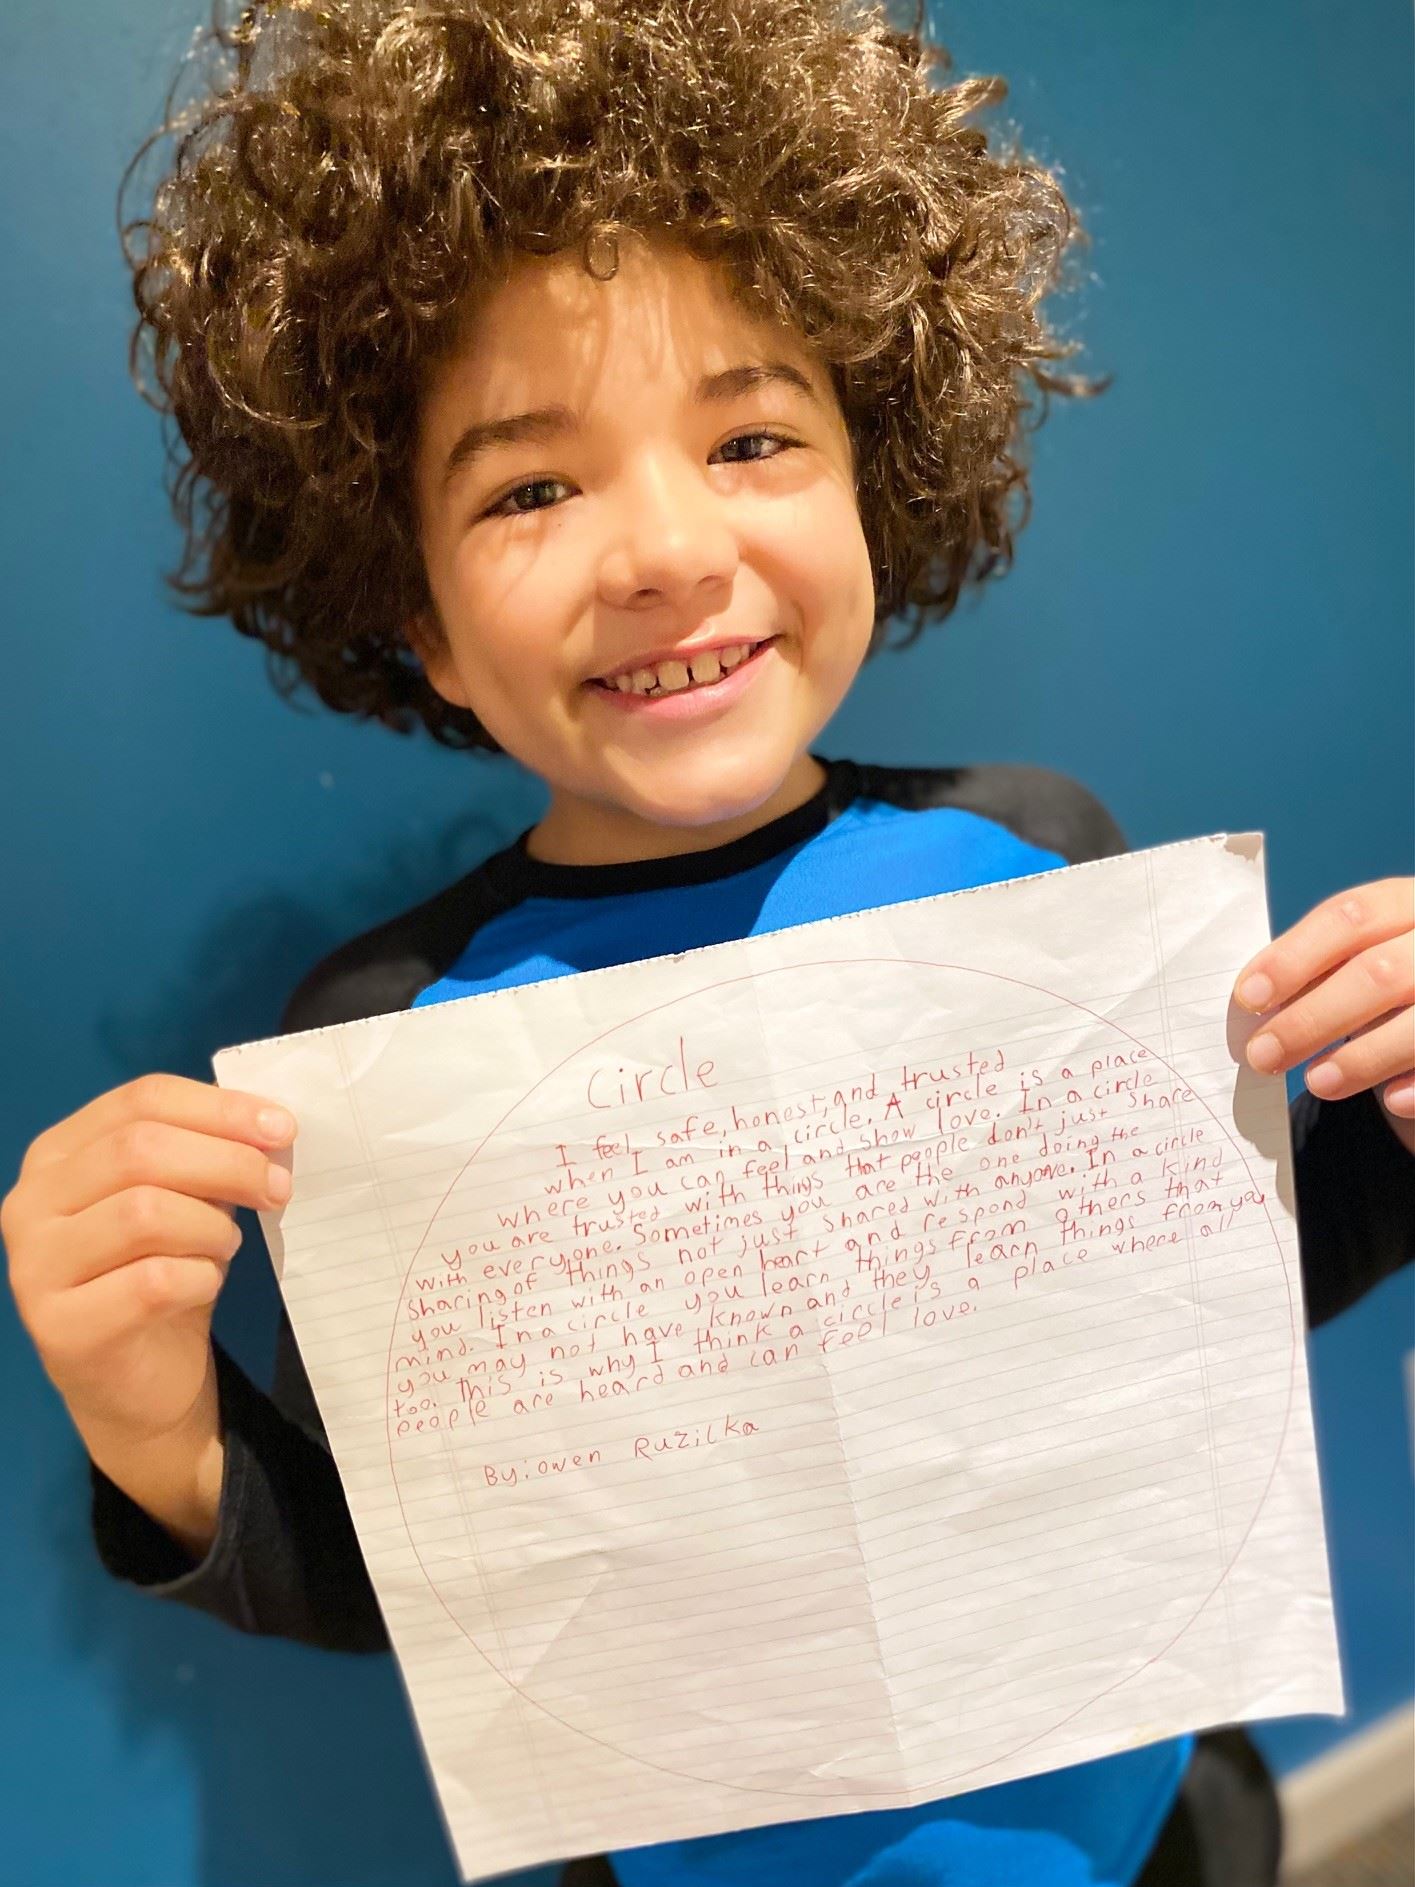 Circle
I feel safe, honest, and trusted
when I am in a circle. A circle is a place
where you can feel and show love. In a circle
you are trusted with things that people don't just share
with everyone. Sometimes you are the one doing the
sharing of things not just shared with anyone. In a circle
you listen with an open heart and respond with a kind
mind. In a circle you learn things from others that
you may not have known and they learn things from you
too. This is why I think a circle is a place where all
people are heard and can feel love.
By: owen Ruzilka